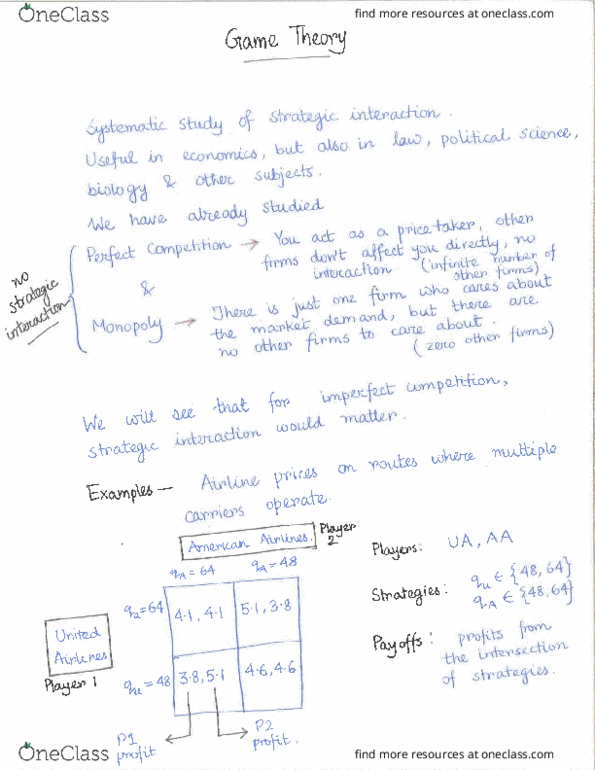 OneClass
find more resources at oneclass.com
Game Theory
Systematic study of strategic interaction.
Useful in economics, but also in law, political science,
biology & other subjects.
We have already studied
Perfect Competition → You act as a price taker, other
firms don't affect you directly, no
interaction (infinite number of
other firms)
&
no
strategic
interaction
Monopoly → There is just one firm who cares about
the market demand, but there are
no other firms to care about.
(zero other firms)
We will see that for imperfect competition,
strategic interaction would matter.
Examples — Airline prices on routes where multiple
carriers operate.
American Airlines. Player 2
qA = 64 qA = 48
United Airlines
Player 1
qu = 64 4.1, 4.1 5.1, 3.8
qu = 48 3.8, 5.1 4.6, 4.6
P1 profit
P2 profit.
Players: UA, AA
Strategies: qu ∈ {48, 64}
qA ∈ {48, 64}
Payoffs: profits from
the intersection
of strategies.
OneClass
find more resources at oneclass.com